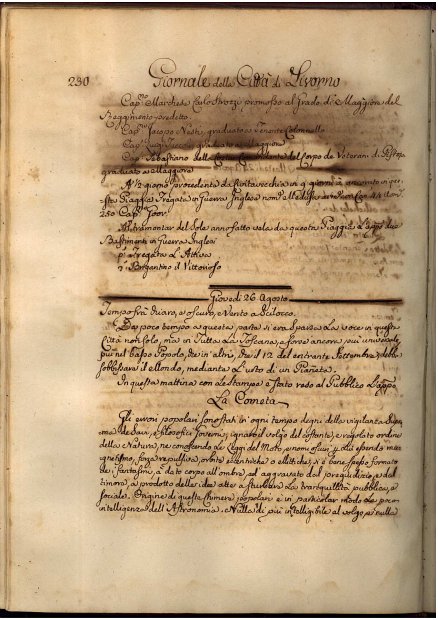 230 Giornale della Città di Livorno
Cap.no Marchese Carlo Strozzi promosso al Grado di Maggiore del
Reggimento predetto
Cap.no Jacopo Nesti graduato a Tenente Colonnello
Cap.no Luigi graduato a Maggiore
Cap.no Sebastiano della Comandante del Corpo de Veterani di
graduato a Maggiore
A ½ giorno procedente da Civitavecchia in 9 giorni è ancorata in que=
sta Piaggia Fregata in Guerra Inglese nom.
250 Cap.no
Al tramontar del Sole anno fatto vela da questa Piaggia i seg.ti due
Bastimenti in Guerra Inglesi
p.a Fregata L'Attiva
2. Brigantino il Vittorioso
Giovedi 26 Agosto
Tempo frà chiaro, e oscuro, e vento a Scilocco.
Da poco tempo a questa parte si era sparsa la voce in questa
Città non solo, ma in tutta la Toscana, e forse ancora più in universale,
più nel basso Popolo, che in altri, che il 12 del entrante Settembre debba
sobbissare il Mondo, mediante l'urto di un Pianeta.
In questa mattina con le stampe è stato reso al Pubblico L'appo
La Cometa
Gli errori popolari sono stati in ogni tempo degni della vigilanza
de Savi, e filosofici sistemi, ignaro il volgo del costante, e regolato ordine
della Natura, ne conoscendo le Leggi del Moto,
gnetismo, forza repulsiva, orbite eccentriche o ellittiche, si è bene spesso formato
dei fantasmi, à dato corpo all'ombre, ed aggravato dal pregiudizio, e dal
timore, à prodotto delle idee atte a sturbare la tranquillità pubblica, e
sociale. Origine di queste chimere popolari è in particolar modo la poca
intelligenza dell'Astronomia. Nulla di più intelligibile al volgo, e nulla